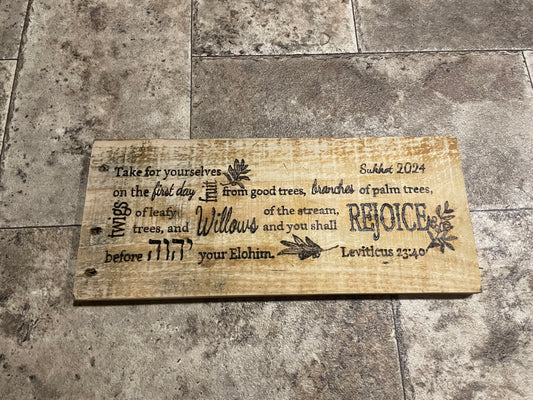 Take for yourselves Sukkot 2024
on the first day fruit from good trees, branches of palm trees,
twigs of leafy trees, and Willows of the stream, and you shall REJOICE
before יהוה your Elohim. Leviticus 23:40